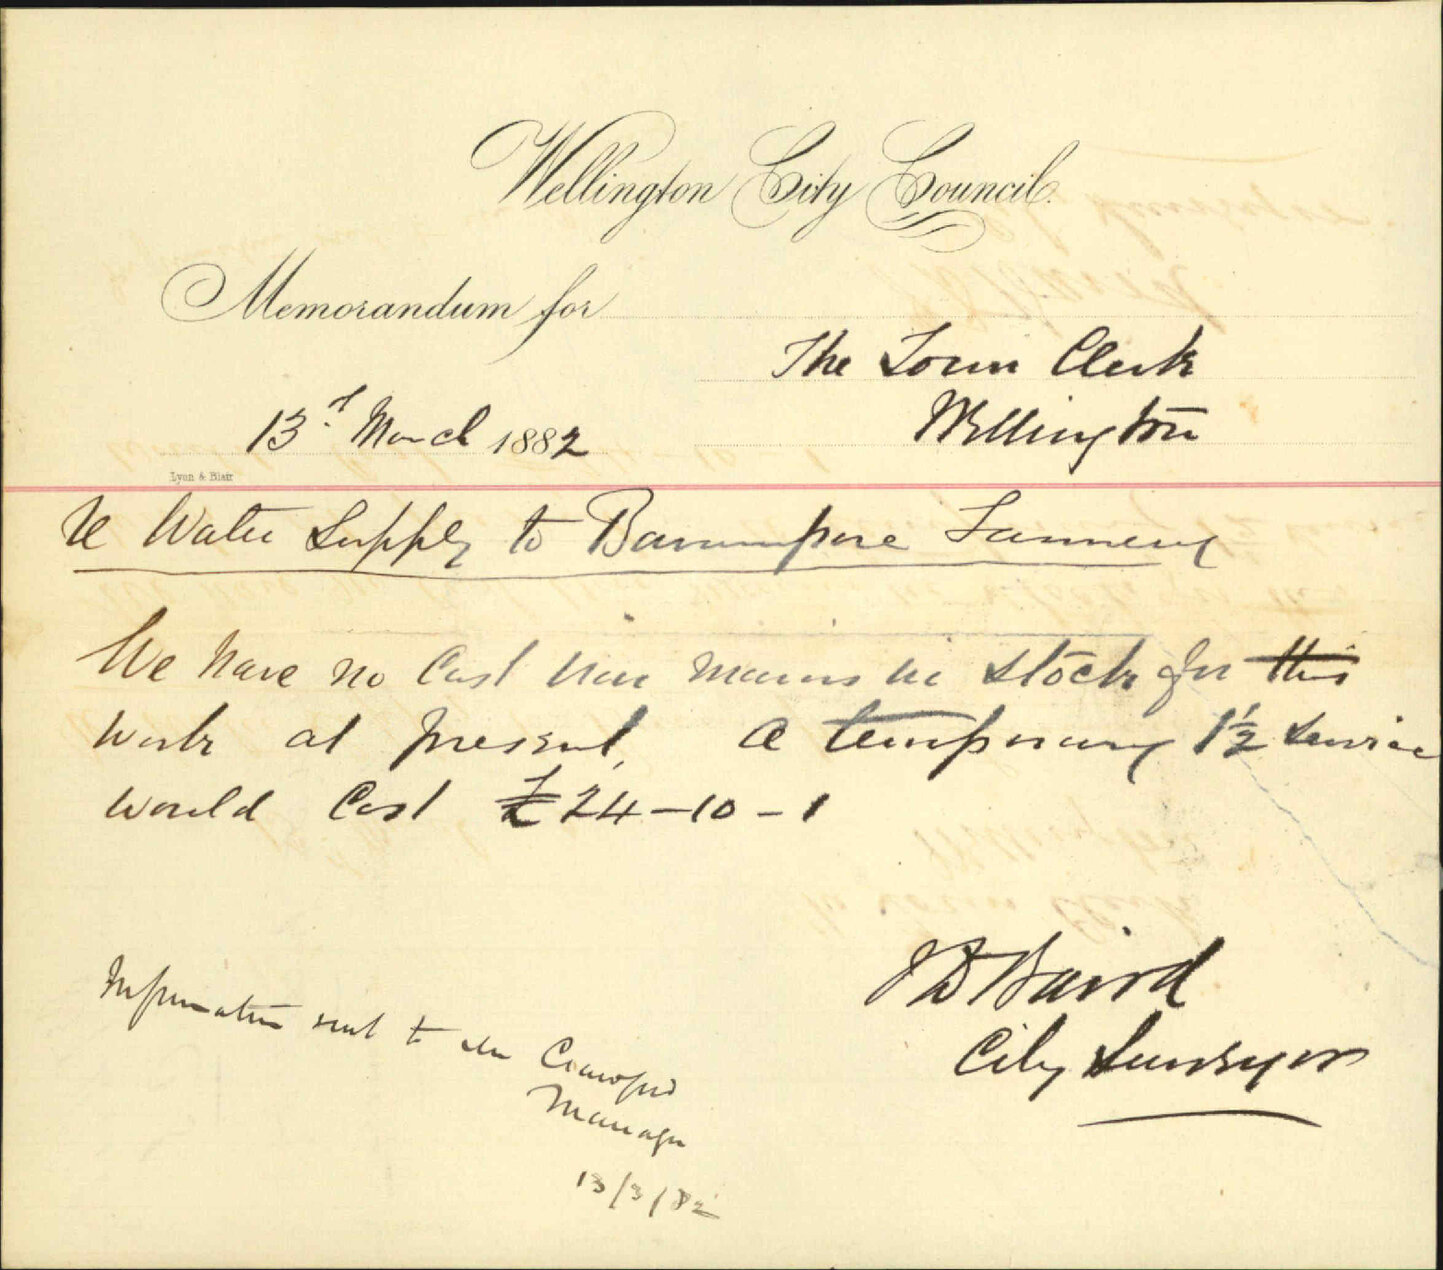 Wellington City Council.
Memorandum for
The Town Clerk
Wellington
13 March 1882
Lyon & Blair
Re Water Supply to Tannery
We have no Cast Iron mains in stock for this
work at present, a temporary 1½ service
would Cost £24-10-1
J D Baird
City Surveyor
Information sent to
Manager
13/3/82